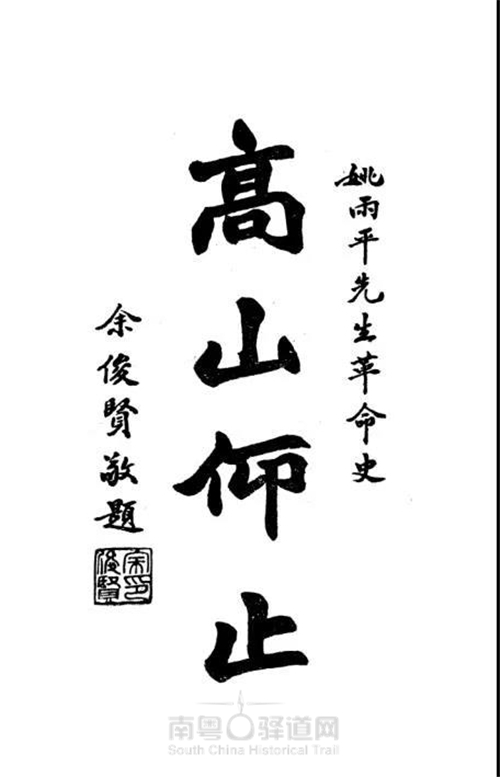 姚雨平先生革命史
高山仰止
余俊賢敬題
余俊賢印
南粤驿道网
South China Historical Trail